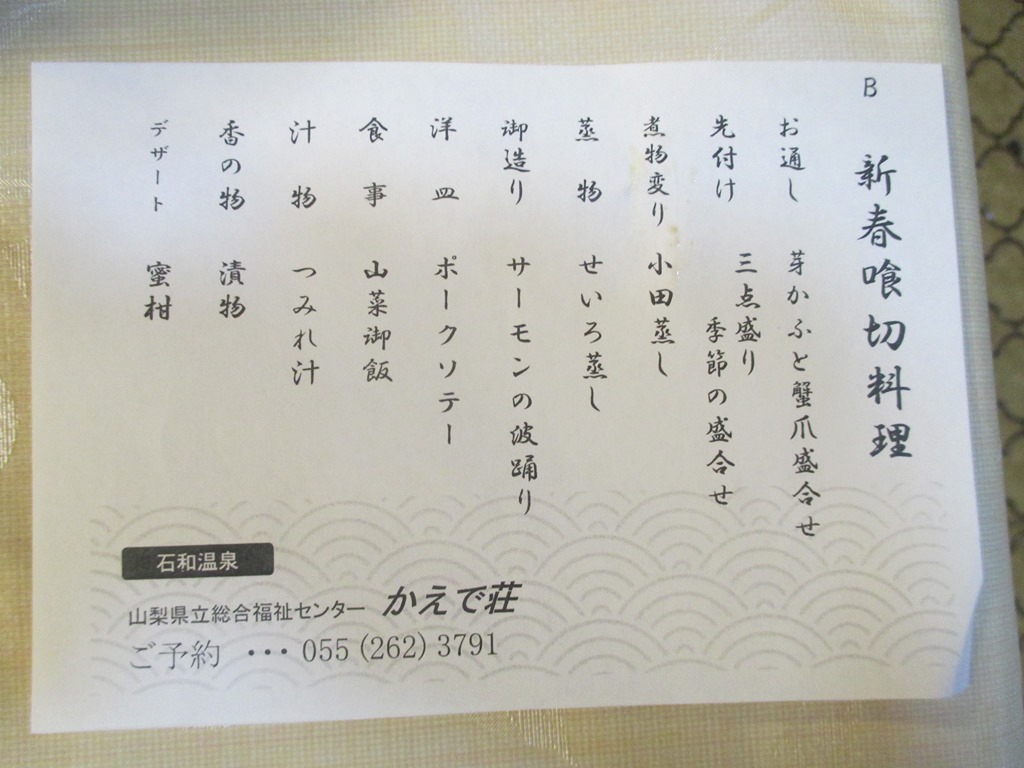 B
新春喰切料理
お通し 芽かぶと蟹爪盛合せ
先付け 三点盛り
季節の盛合せ
煮物変り 小田蒸し
蒸物 せいろ蒸し
御造り サーモンの波踊り
洋皿 ポークソテー
食事 山菜御飯
汁物 つみれ汁
香の物 漬物
デザート 蜜柑
石和温泉
山梨県立総合福祉センター かえで荘
ご予約 ・・・ 055 (262) 3791